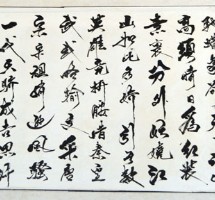 高须晴日看红装
素裹分外妖娆江
山如此多娇引无数
英雄竞折腰惜秦皇
汉武略输文采唐
宗宋祖稍逊风骚
一代天骄成吉思汗